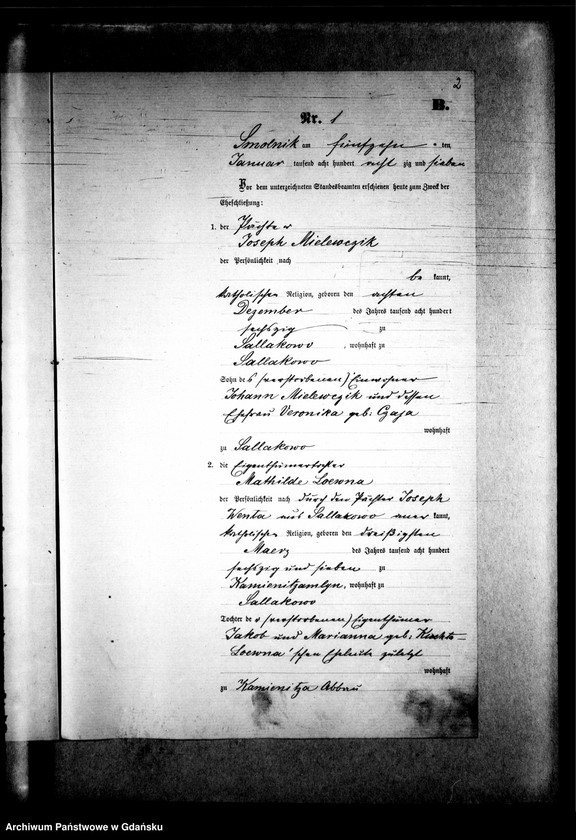 2
B.
Nr. 1
Smolnik am fünfzehn ten
Januar tausend acht hundert acht zig und sieben
Vor dem unterzeichneten Standesbeamten erschienen heute zum Zweck der
Eheschließung:
1. der Pächter
Joseph Mielewczik
der Persönlichkeit nach
be kannt,
katholischer Religion, geboren den achten
Dezember des Jahres tausend acht hundert
sechszig zu
Sallakowo, wohnhaft zu
Sallakowo
Sohn des (verstorbenen) Einwohner
Johann Mielewczik und dessen
Ehefrau Veronika geb: Czaja
wohnhaft
zu Sallakowo
2. die Eigenthümertochter
Mathilde Loewna
der Persönlichkeit nach durch den Pächter Joseph
Wenta aus Sallakowo aner kannt,
katholischer Religion, geboren den dreißigsten
Maerz des Jahres tausend acht hundert
sechszig und sieben zu
Kamienitzamlyn, wohnhaft zu
Sallakowo
Tochter der (verstorbenen) Eigenthümer
Jakob und Marianna geb:
Loewna'schen Eheleute zuletzt
wohnhaft
zu Kamienitza Abbau
Archiwum Państwowe w Gdańsku